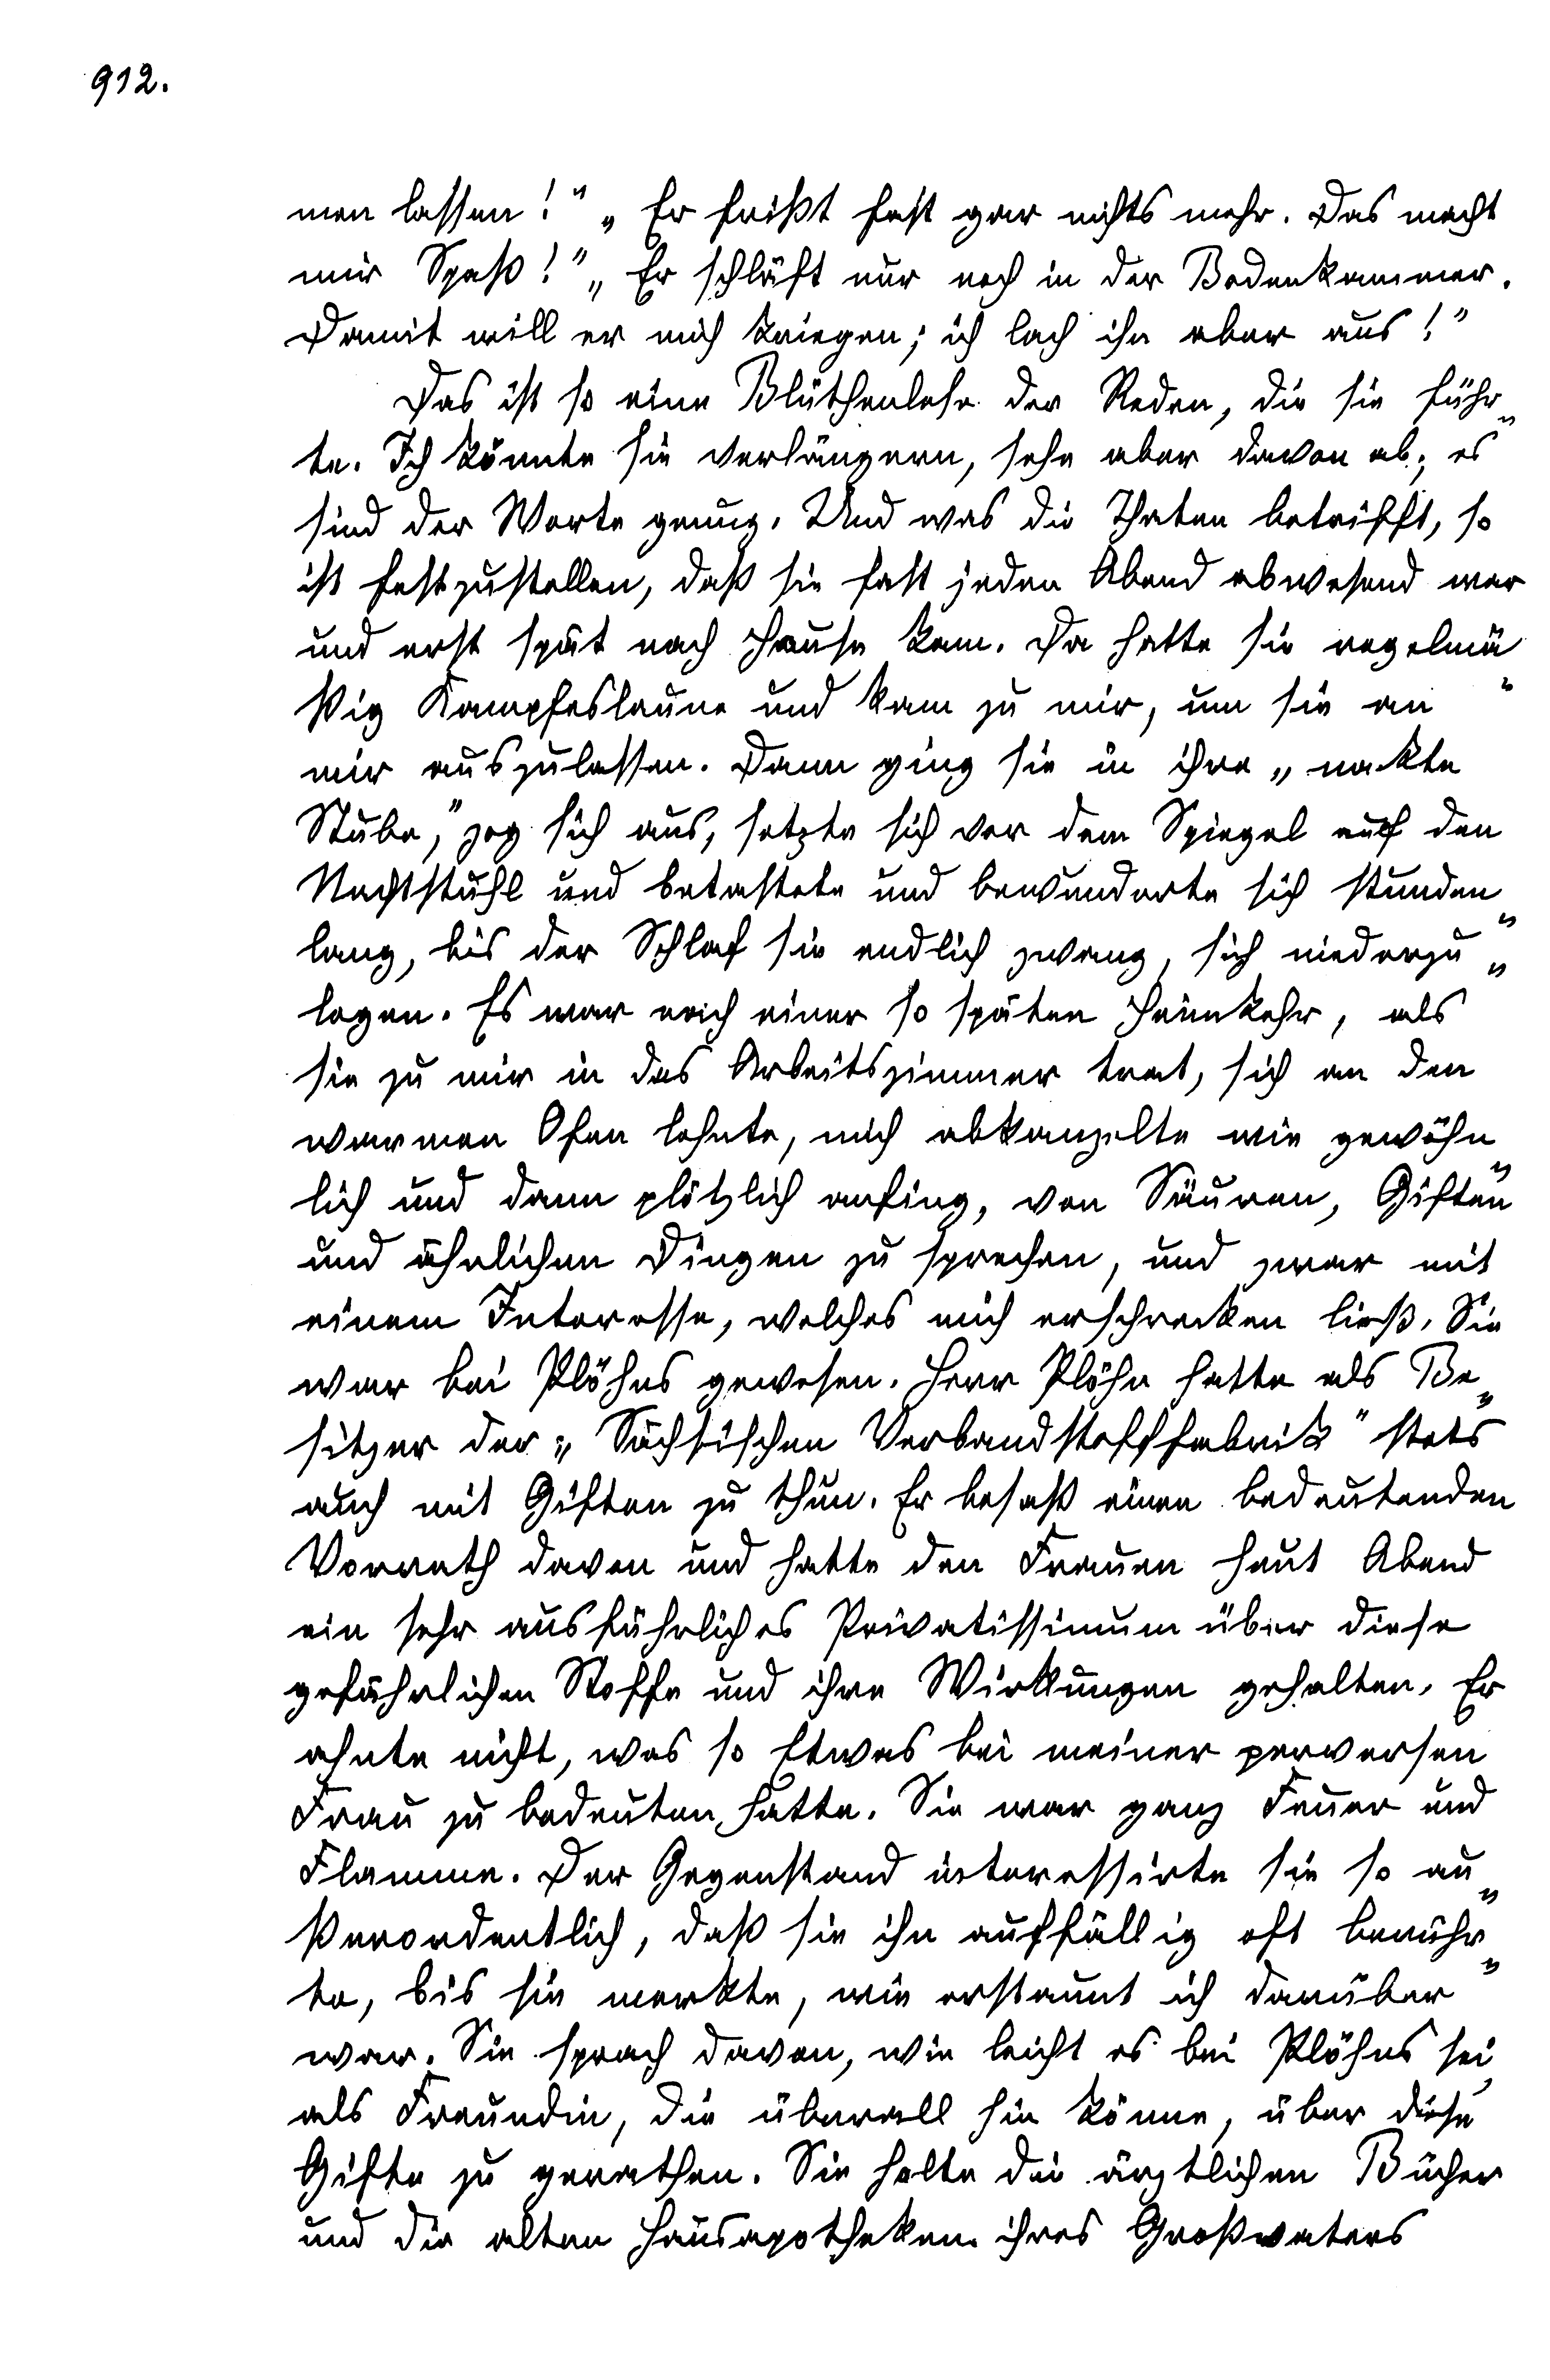 912.
men lassen!" „Er frißt fast gar nichts mehr. Das macht
mir Spaß!" „Er schläft nur noch in der Bodenkammer.
Damit will er mich kriegen; ich lach ihn aber aus!"
Das ist so eine Blüthenlese der Reden, die sie führ„
te. Ich könnte sie verlängern, sehe aber davon ab; es
sind der Worte genug. Und was die Thaten betrifft, so
ist festzustellen, daß sie fast jeden Abend abwesend war
und erst spät nach Hause kam. Da hatte sie regelmä„
ßig Kampfeslaune und kam zu mir, um sie an
mir auszulassen. Dann ging sie in ihre „nackte
Stube," zog sich aus, setzte sich vor dem Spiegel auf den
Nachtstuhl und betastete und bewunderte sich stunden„
lang, bis der Schlaf sie endlich zwang, sich niederzu„
legen. Es war nach einer so späten Heimkehr, als
sie zu mir in das Arbeitszimmer trat, sich an den
warmen Ofen lehnte, mich abkanzelte wie gewöhn„
lich und dann plötzlich anfing, von Säuren, Giften
und ähnlichen Dingen zu sprechen, und zwar mit
einem Interesse, welches mich erschrecken ließ. Sie
war bei Plöhns gewesen. Herr Plöhn hatte als Be„
sitzer der „Sächsischen Verbandstofffabrik" stets
auch mit Giften zu thun. Er besaß einen bedeutenden
Vorrath davon und hatte den Frauen heut Abend
ein sehr ausführliches Privatissimum über diese
gefährlichen Stoffe und ihre Wirkungen gehalten. Er
ahnte nicht, was so Etwas bei meiner perversen
Frau zu bedeuten hatte. Sie war ganz Feuer und
Flamme. Der Gegenstand interessirte sie so au„
ßerordentlich, daß sie ihn auffällig oft berühr„
te, bis sie merkte, wie erstaunt ich darüber
war. Sie sprach davon, wie leicht es bei Plöhns sei,
als Freundin, die überall hin könne, über diese
Gifte zu gerathen. Sie holte die ärztlichen Bücher
und die alten Hausapotheken ihres Großvaters